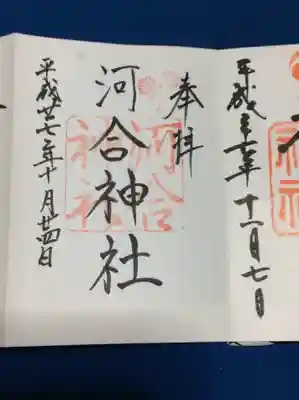 平成 年 十一月七日
奉拝
河合神社
河合
神社
平成廿七年十月廿四日